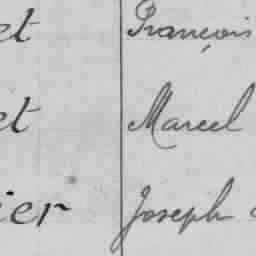 et François
et Marcel
ier Joseph